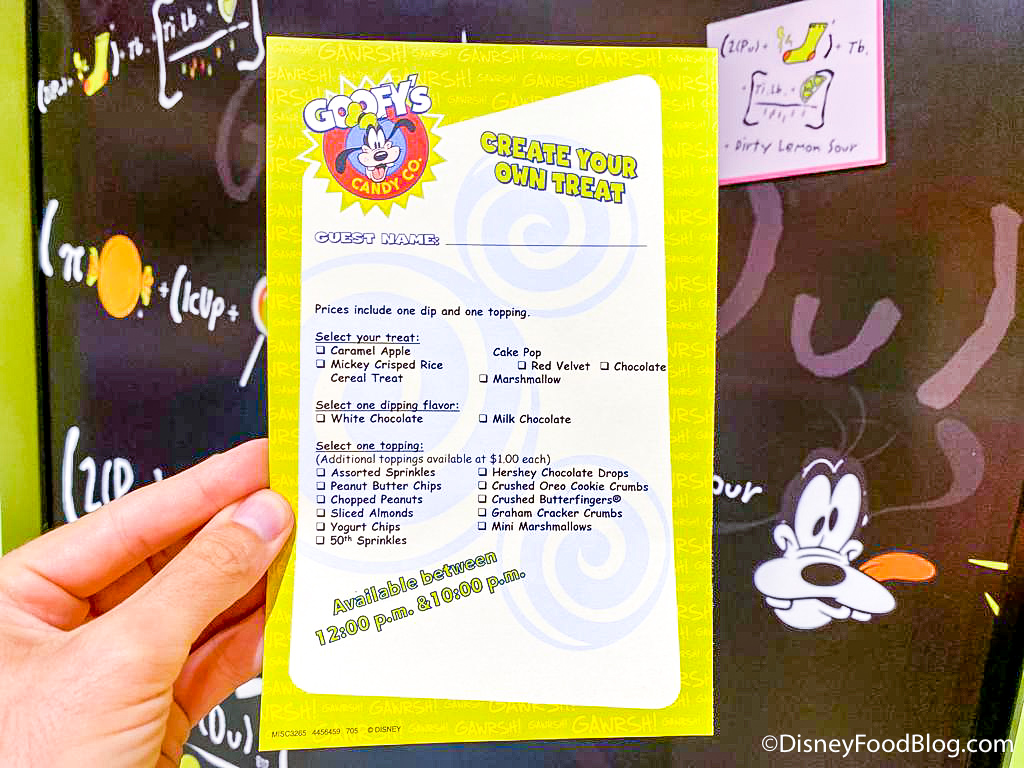 GAWRSH!
GOOFY'S
CANDY CO.
CREATE YOUR
OWN TREAT
GUEST NAME:
Prices include one dip and one topping.
Select your treat:
❑ Caramel Apple
❑ Mickey Crisped Rice
Cereal Treat
Cake Pop
❑ Red Velvet ❑ Chocolate
❑ Marshmallow
Select one dipping flavor:
❑ White Chocolate ❑ Milk Chocolate
Select one topping:
(Additional toppings available at $1.00 each)
❑ Assorted Sprinkles ❑ Hershey Chocolate Drops
❑ Peanut Butter Chips ❑ Crushed Oreo Cookie Crumbs
❑ Chopped Peanuts ❑ Crushed Butterfingers®
❑ Sliced Almonds ❑ Graham Cracker Crumbs
❑ Yogurt Chips ❑ Mini Marshmallows
❑ 50th Sprinkles
Available between
12:00 p.m. &10:00 p.m.
MISC3265 4456459 705 © DISNEY
(2(Pu) + ) + Tb.
Ti. Lb. +
= Dirty Lemon Sour
(π ) + (1cUp +
(2(P
our
(Du)
©DisneyFoodBlog.com